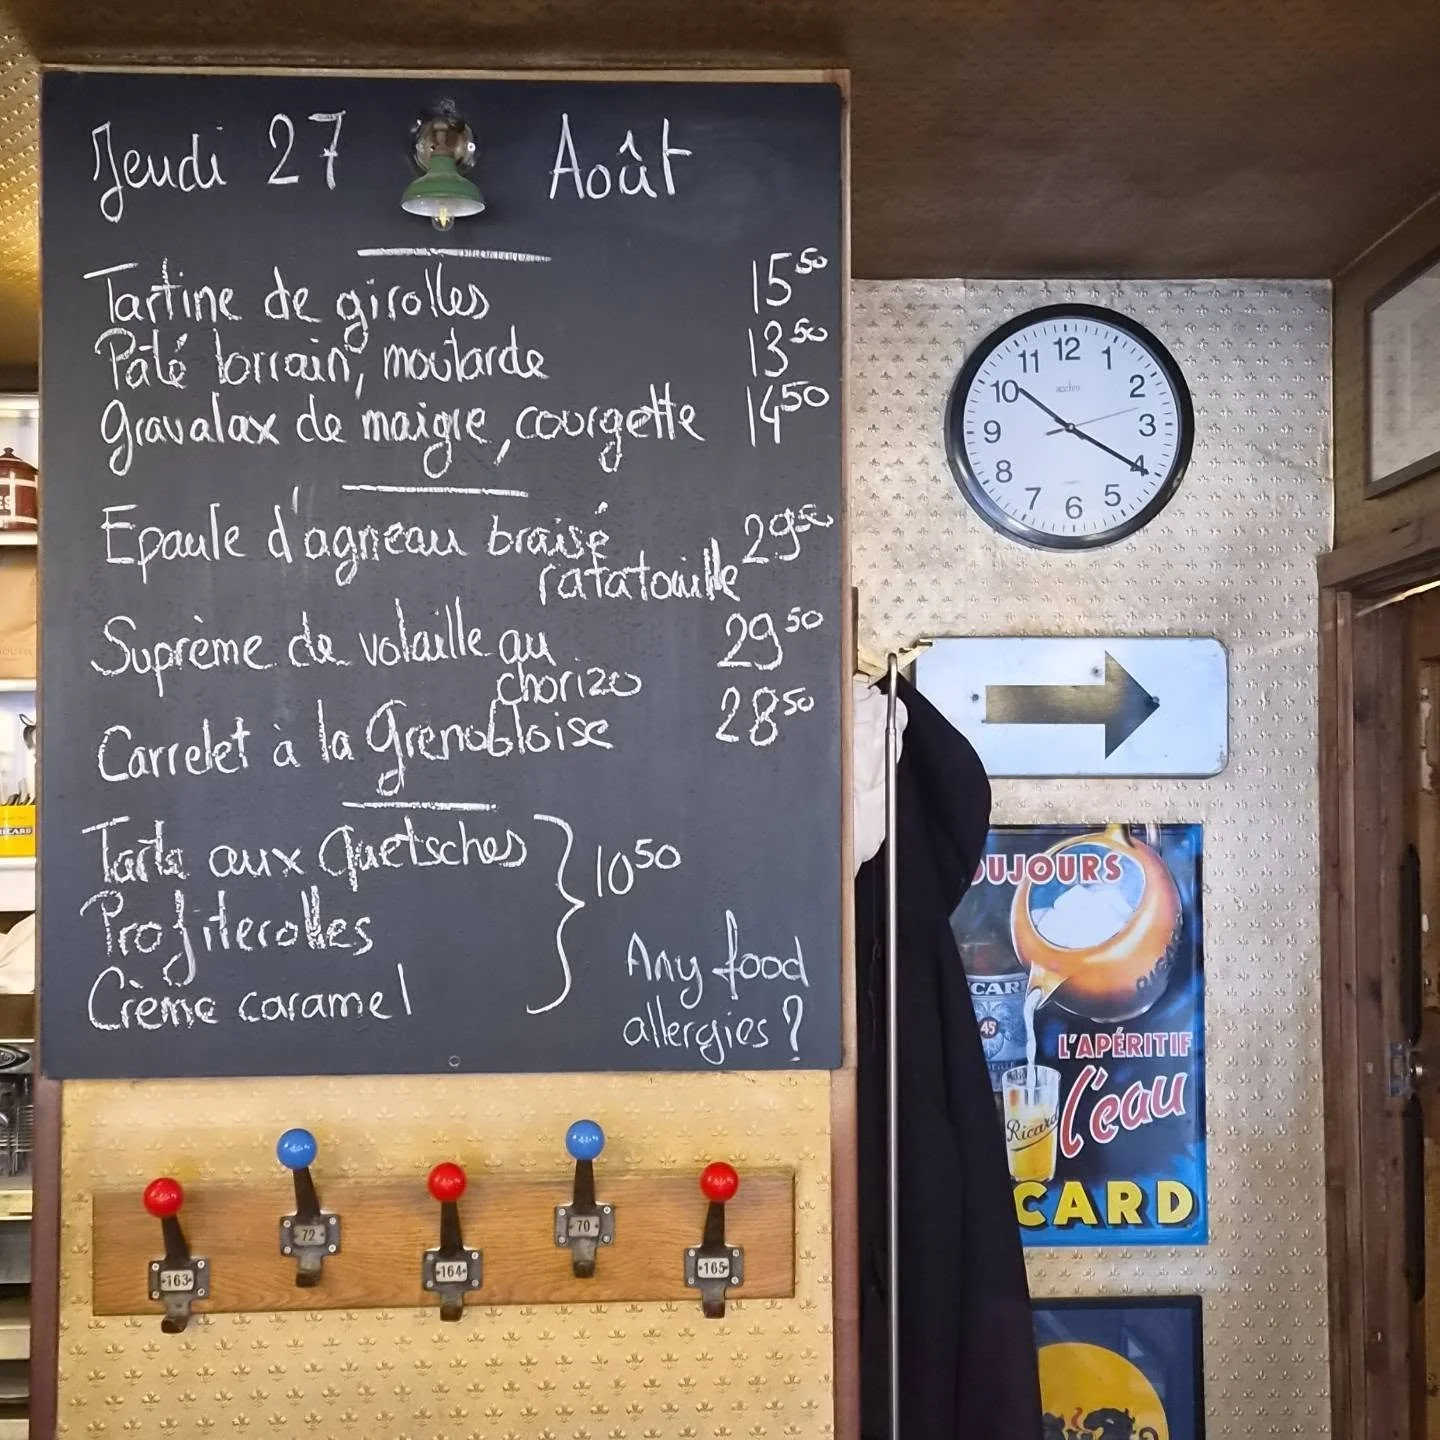 Jeudi 27 Août
Tartine de girolles 15⁵⁰
Pâté lorrain, moutarde 13⁵⁰
Gravalax de maigre, courgette 14⁵⁰
Epaule d'agneau braisé 29⁵⁰
ratatouille
Suprème de volaille au 29⁵⁰
chorizo
Carrelet à la Grenobloise 28⁵⁰
Tarte aux Quetsches
Profiterolles
Crème caramel
10⁵⁰
Any food
allergies?
163
72
164
70
165
12
1
2
3
4
5
6
7
8
9
10
11
OUJOURS
RICARD
CARD
45
L'APÉRITIF
l'eau
Ricard
CARD
RICARD